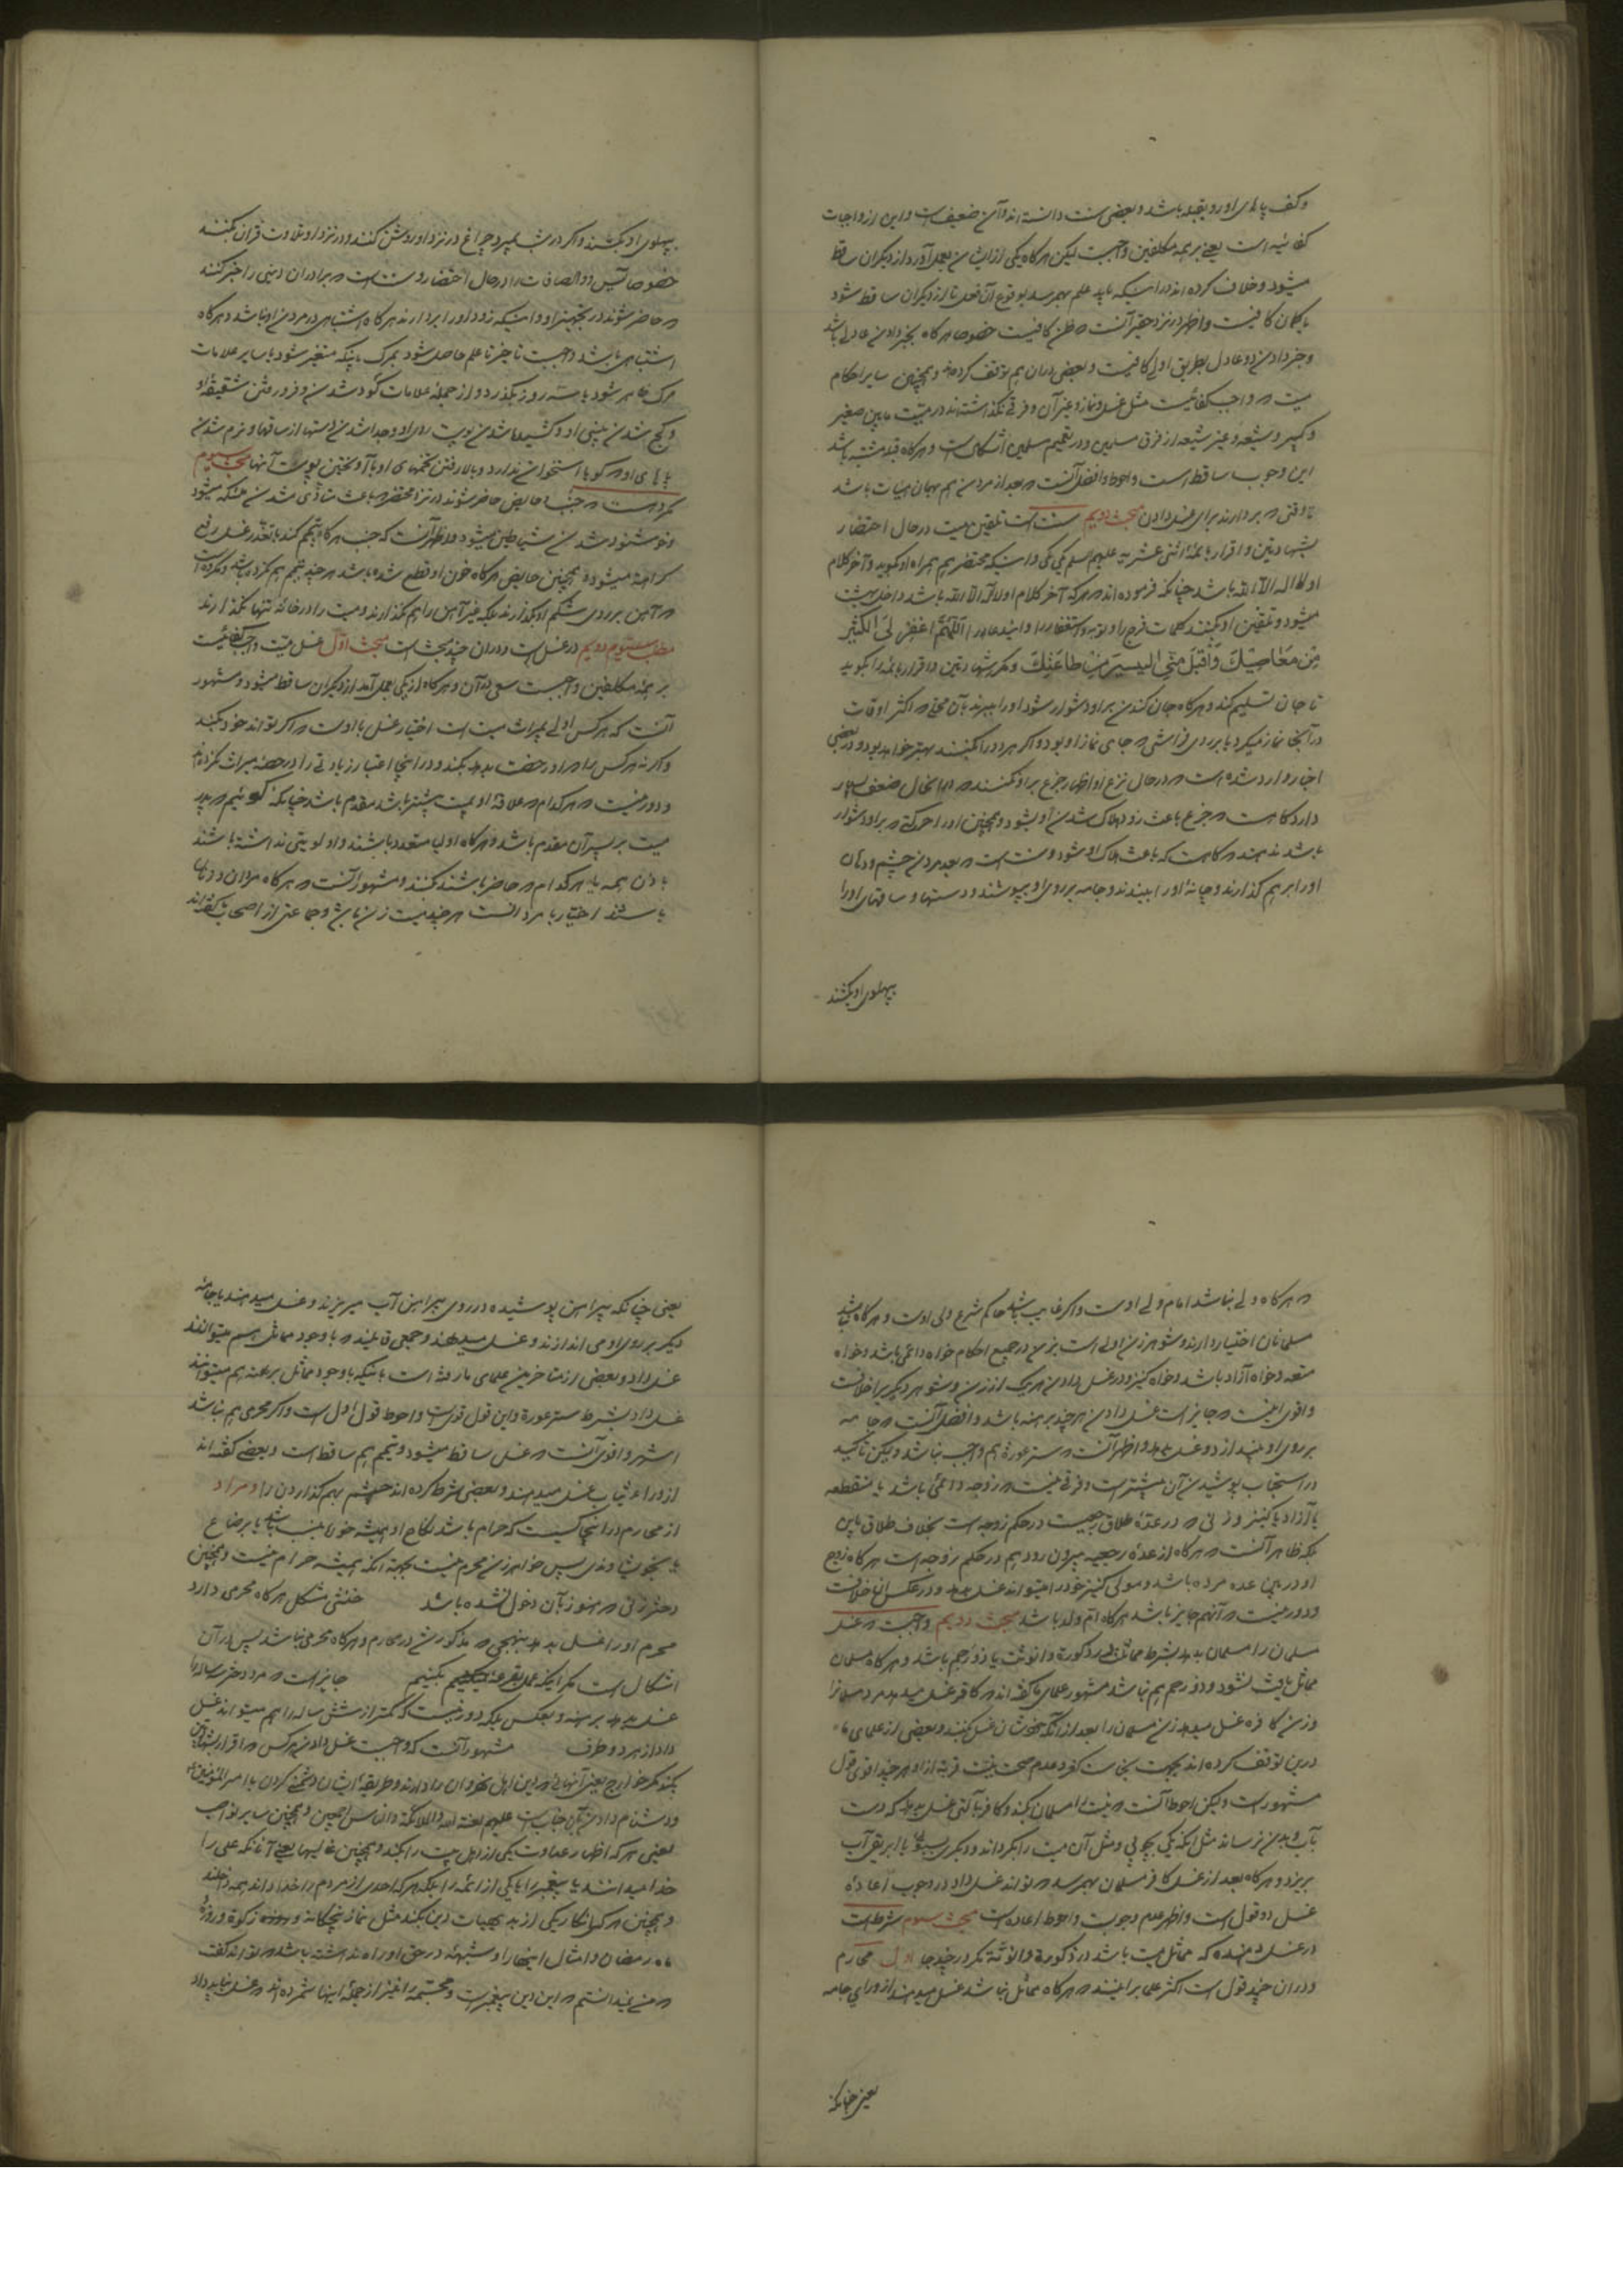 و کف پاهای او رو بقبله باشد و بعضی سنت دانسته اند و آن ضعیف است و این از واجبات
کفائیه است یعنی بر همه مکلفین واجبست لیکن هر گاه یکی از ایشان بعمل آورد از دیگران ساقط
میشود و خلاف کرده اند در اینکه باید علم بهم رسد بوقوع آن فعل تا از دیگران ساقط شود
یا گمان کافیست و اظهر در نزد حقیر آنست که ظن کافیست خصوصا هر گاه بخبر دادن عادلی باشد
و خبر دادن دو عادل بطریق اولی کافیست و بعضی در آن هم توقف کرده اند و همچنین سایر احکام
میت که واجب کفائیست مثل غسل و نماز و غیر آن و فرقی نگذاشته اند در میت مابین صغیر
و کبیر و شیعه و غیر شیعه از فرق مسلمین و در تعمیم مسلمین اشکالی است و هر گاه قبله مشتبه باشد
این وجوب ساقط است و احوط و افضل آنست که بعد از مردن هم بهمان هیئات باشد
تا وقتی که بردارند برای غسل دادن مبحث دویم سنت است تلقین میت در حال احتضار
بشهادتین و اقرار بائمه اثنی عشریه علیهم السلم یکی یکی و اینکه محتضر هم همراه او بگوید و آخر کلام
او لا اله الا الله باشد چنانکه فرموده اند که هر که آخر کلام او لا اله الا الله باشد داخل بهشت
میشود و تلقین او بکنند کلمات فرج را و توبه و استغفار را و این دعا را اللهم اغفر لی الکثیر
من معاصیک و اقبل منی الیسیر من طاعتک و مکرر شهادتین و اقرار بائمه را بگوید
تا جان تسلیم کند و هر گاه جان کندن بر او دشوار شود او را ببرند بآن محلی که اکثر اوقات
در آنجا نماز میکرد یا بر روی فراشی که جای نماز او بود و اگر هر دو را بکنند بهتر خواهد بود و در بعضی
اخبار وارد شده است که در حال نزع او اظهار جزع بر او نکنند که در این حال ضعف بسیار
دارد گاه است که جزع باعث زود هلاک شدن او بشود و همچنین او را حرکتی که بر او دشوار
باشد ندهند که گاه است که باعث هلاک او شود و سنت است که بعد مردن چشم و دهان
او را بر هم گذارند و چانه او را ببندند و جامه بر روی او بپوشند و دستها و ساقهای او را
پهلوی او بکشند
پهلوی او بکشند و اگر در شب بمیرد چراغ در نزد او روشن کنند و در نزد او تلاوت قرآن بکنند
خصوصا یس و والصافات را در حال احتضار و سنت است که برادران دینی را خبر کنند
که حاضر شوند در تجهیز او و اینکه زود او را بردارند هر گاه اشتباهی در مردن او نباشد و هر گاه
اشتباهی باشد واجبست تاخیر تا علم حاصل شود بمرگ باینکه متغیر شود یا سایر علامات
مرگ ظاهر شود یا سه روز بگذرد و از جمله علامات گود شدن و فرو رفتن شقیقه او
و کج شدن بینی او و کشیده شدن پوست روی او و جدا شدن دستها از ساقها و نرم شدن
پاهای او که گویا استخوان ندارد و بالا رفتن تخمهای او با آویختن پوست آنها مبحث سیوم
مکروهست که جنب یا حایض حاضر شوند در نزد محتضر که باعث متأذی شدن ملئکه میشود
و خوشنود شدن شیاطین میشود و اظهر آنست که جنب هر گاه تیمم کند با تعذر غسل رفع
کراهة میشود و همچنین حایض هر گاه خون او قطع شده باشد هر چند تیمم هم نکرده باشد و مکروه است
که آهن بر روی شکم او بگذارند بلکه غیر آهن را هم نگذارند و میت را در خانه تنها نگذارند
مطلب دویم در غسل است و در آن چند بحث است مبحث اول غسل میت واجب کفائیست
بر همه مکلفین واجبست سعی در آن و هر گاه از یکی بعمل آمد از دیگران ساقط میشود و مشهور
آنست که هر کس اولی بمیراث میت است اختیار غسل با اوست که اگر تواند خود بکند
و گر نه هر کس را که او رخصت بدهد بکند و در اینجا اعتبار زیادتی را در حصه میراث نکرده اند
و دور نیست که هر کدام که علاقه او بمیت بیشتر باشد مقدم باشد چنانکه گوئیم که پدر
میت بر پسر آن مقدم باشد و هر گاه اولیا متعدد باشند و اولویتی نداشته باشند
باذن همه یا هر کدام که حاضر باشند بکنند و مشهور آنست که هر گاه مردان و زنان
باشند اختیار با مردانست هر چند میت زن باشد و جماعتی از اصحاب گفته اند
که هر گاه ولی نباشد امام ولی اوست و اگر غایب باشد حاکم شرع ولی اوست و هر گاه نباشد
مسلمانان اختیار دارند و شوهر زن اولی است بزن در جمیع احکام خواه دائمی باشد و خواه
متعه و خواه آزاد باشد و خواه کنیز و در غسل دادن هر یک از زن و شوهر دیگری را خلافست
و اقوی اینست که جایز است غسل دادن هر چند برهنه باشد و افضل آنست که جامه
بر روی او بیندازد و غسل بدهد و اظهر آنست که ستر عورة هم واجب نباشد و لیکن تاکید
در استحباب پوشیدن آن بیشتر است و فرقی نیست که زوجه دائمی باشد یا منقطعه
یا آزاد یا کنیز و زنی که در عده طلاق رجعیست در حکم زوجه است بخلاف طلاق باین
بلکه ظاهر آنست که هر گاه از عده رجعیه بیرون رود هم در حکم زوجه است هر گاه زوج
او در بین عده مرده باشد و مولی کنیز خود را میتواند غسل بدهد و در عکس آن خلافست
و دور نیست که آنهم جایز باشد هر گاه ام ولد باشد مبحث دویم واجبست که غسل
مسلمان را مسلمان بدهد بشرط مماثلة در ذکورة و انوثت یا ذو رحم باشد و هر گاه مسلمان
مماثل یافت نشود و ذو رحم هم نباشد مشهور علمای ما گفته اند که کافر غسل میدهد مرد مسلمانرا
و زن کافره غسل میدهد زن مسلمان را بعد از آنکه خودشان غسل بکنند و بعضی از علمای ما
درین توقف کرده اند بجهت نجاست کفر و عدم صحت نیت قربة از او هر چند اقوی قول
مشهور است و لیکن احوط آنست که نیت را مسلمان بکند و کافر بآلتی غسل بدهد که دست
بآب و بدن نرساند مثل اینکه یکی بچوبی و مثل آن میت را بگرداند و دیگری بسبوئی یا ابریقی آب
بریزد و هر گاه بعد از غسل کافر مسلمان بهم رسد که تواند غسل داد در وجوب اعاده
غسل دو قول است و اظهر عدم وجوبست و احوط اعاده است مبحث سیوم شرط است
در غسل دهنده که مماثل میت باشد در ذکورة و انوثة مگر در چند جا اول محارم
و در آن چند قول است اکثر علما بر اینند که هر گاه مماثل نباشد غسل میدهند از ورای جامه
یعنی چنانکه
یعنی چنانکه پیراهن پوشیده در روی پیراهن آب میریزند و غسل میدهند یا جامه
دیگر بر روی او می اندازند و غسل میدهند و جمعی قایلند که با وجود مماثل هم میتوانند
غسل داد و بعضی از متاخرین علمای ما رفته است باینکه با وجود مماثل برهنه هم میتوانند
غسل داد بشرط ستر عورة و این قول قوی است و احوط قول اول است و اگر محرمی هم نباشد
اشهر و اقوی آنست که غسل ساقط میشود و تیمم هم ساقط است و بعضی گفته اند
از ورای ثیاب غسل میدهند و بعضی شرط کرده اند چشم بهم گذاردن را و مراد
از محارم در اینجا کسیست که حرام باشد نکاح او همیشه خواه بنسب باشد یا برضاع
یا بخویشاوندی پس خواهر زن محرم نیست بجهة آنکه همیشه حرام نیست و همچنین
دختر زنی که هنوز بآن دخول نشده باشد خنثی مشکل هر گاه محرمی دارد
محرم او را غسل بدهد بنهجی که مذکور شد در محارم و هر گاه محرمی نباشد پس در آن
اشکال است مگر اینکه عمل بقرعه بکنیم جایز است که مرد دختر سه ساله را
غسل بدهد برهنه و بعکس بلکه دور نیست که کمتر از شش ساله را هم میتواند غسل
داد از هر دو طرف مشهور آنست که واجبست غسل دادن هر کس که اقرار بشهادتین
بکند مگر خوارج یعنی آنهائی که این اهل نهروان را دارند و طریقه ایشان دشمنی کردن با امیر المؤمنین
و دشنام دادن بآن جناب است علیهم لعنة الله والملائکة والناس اجمعین و همچنین سایر نواصب
یعنی هر که اظهار عداوت یکی از اهل بیت را بکند و همچنین غالیها یعنی آنانکه علی را
خدا میدانند یا پیغمبر را یا یکی از ائمه را بلکه هر که احدی از مردم را خدا داند همه داخلند
و همچنین هر که انکار یکی از بدیهیات دین بکند مثل نماز پنجگانه و زکوة و روزه
ماه رمضان و امثال اینها را و شبهه در حق او راه نداشته باشد که تواند گفت
که من نمیدانستم که این دین پیغمبر است و مجسمه را نیز از جمله اینها شمرده اند که غسل نباید داد